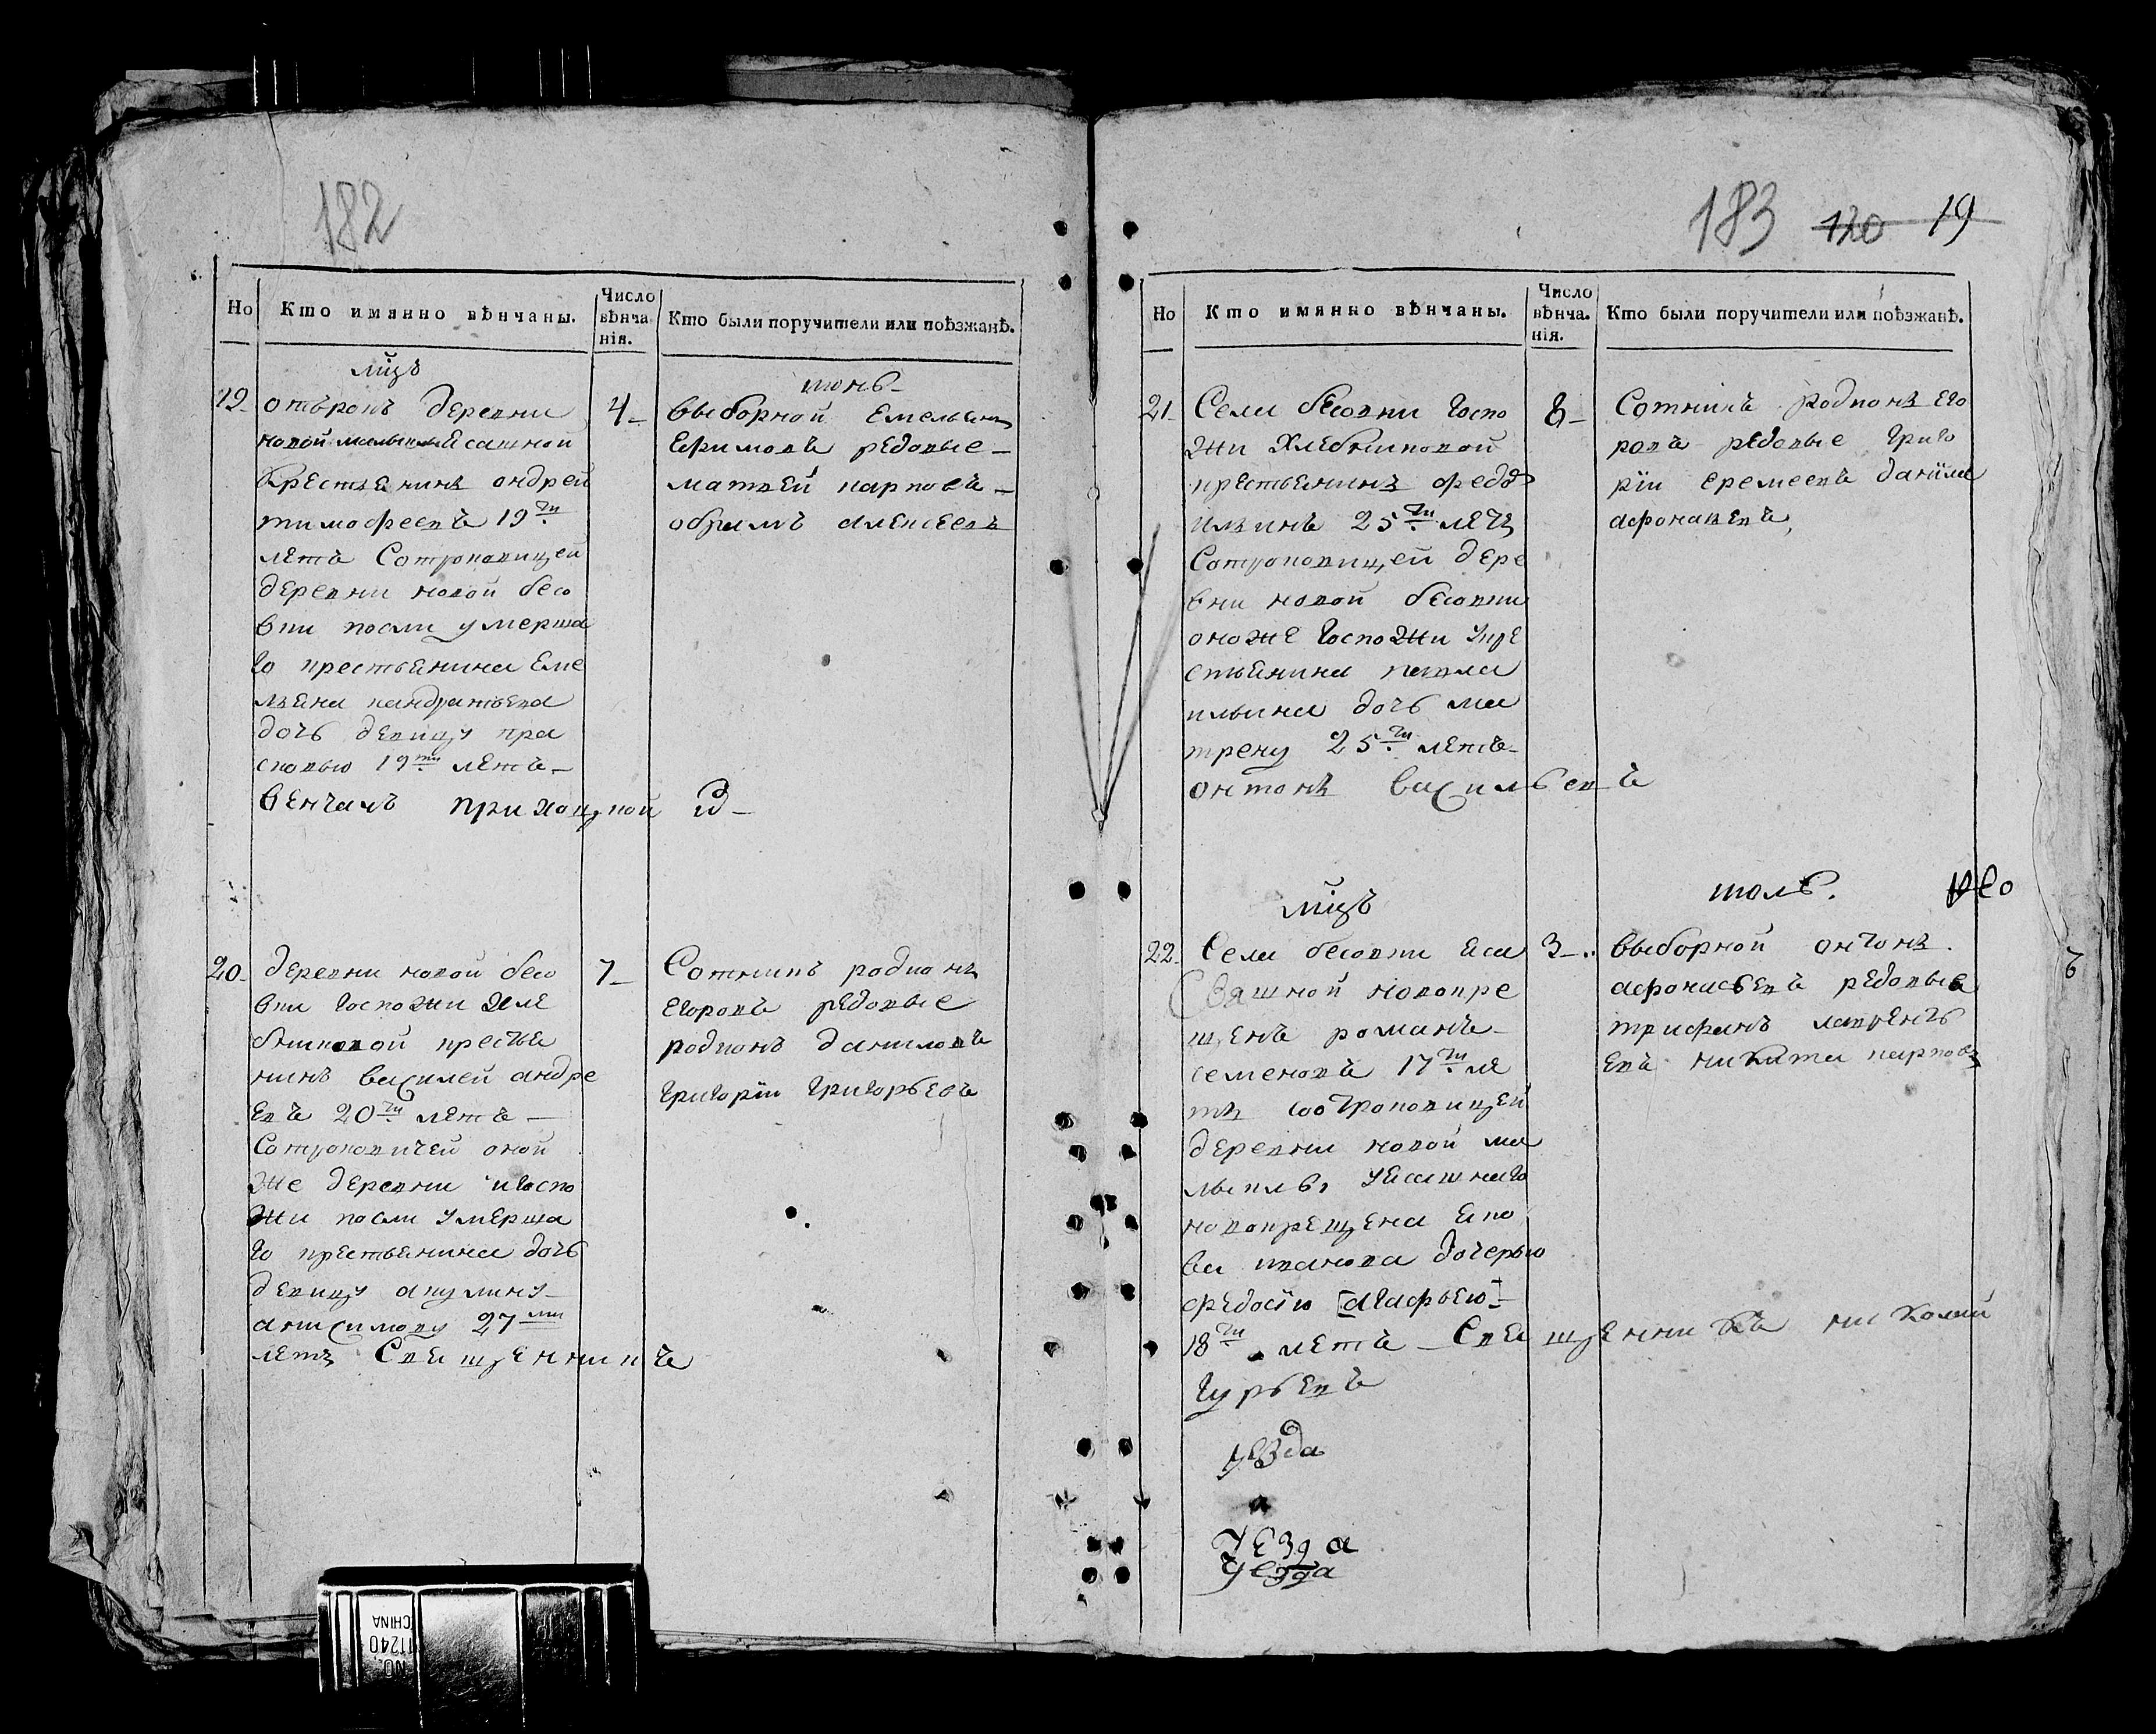 182
Но
Кто имянно вѣнчаны.
Число вѣнча нія.
Кто были поручители или поѣзжанѣ.
мцъ
июнь
19 отъронъ деревни
новой
крестьянинъ андрей
тимофеевъ 19ти
летъ Сотроковицей
деревни новой бесо
вки посли умерша
го крестьянина Еме
льяна кандратьева
дочь девицу пра
сковью 19ти летъ
венчалъ приходской
4
выборной Емельянъ
Ефимовъ редовые
матвей карповъ
абрамъ алексеевъ
20 деревни новой бесо
вки госпожи хле
бниковой крестья
нинъ василей андре
евъ 20ти летъ
Сотроковичей оной
же деревни и госпо
жи посли умерша
го крестьянина дочь
девицу акулину
анисимову 27ми
летъ Священникъ
7
Сотникъ родионъ
егоровъ редовые
родионъ даниловъ
григорiи григорьевъ
183 120 19
Но
Кто имянно вѣнчаны.
Число вѣнча. нія.
Кто были поручители или поѣзжанѣ.
21 Села бесовки госпо
жи Хлебниковой
крестьянинъ федоръ
ильинъ 25ти летъ
Сотроковицей дере
вни новой бесовки
оноже госпожи кре
стьянина павла
ильина дочь ма
трену 25ти летъ
онтонъ васильевъ
8
Сотникъ родионъ его
ровъ редовые григо
рiи еремеевъ данiила
афонасевъ
мцъ
июль.
22 Села бесовки яса
шной новокре
щенъ романъ
семеновъ 17ти ле
тъ соотроковицей
деревни новой ма
лыклы уясашнаго
новокрещена яко
ва иванова дочерью
федосiю агафьею
18ти летъ Священникъ николай
гурьевъ
3
выборной онтонъ
афонасьевъ редовые
трифанъ лаврентъ
евъ никита карповъ
уезда
Уезда
Уезда
NO. 11240
CHINA